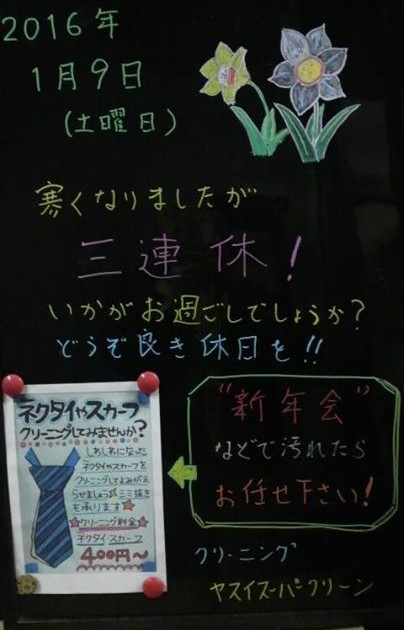 2016年
1月9日
(土曜日)
寒くなりましたが
三連休!
いかがお過ごしでしょうか?
どうぞ良き休日を!!
ネクタイやスカーフ
クリーニングしてみませんか?
しわしわになった
ネクタイやスカーフを
クリーニングしてよみがえ
らせましょう シミ抜き
も承ります
クリーニング料金
ネクタイ・スカーフ
400円〜
"新年会"
などで汚れたら
お任せ下さい!
クリーニング
ヤスイスーパークリーン